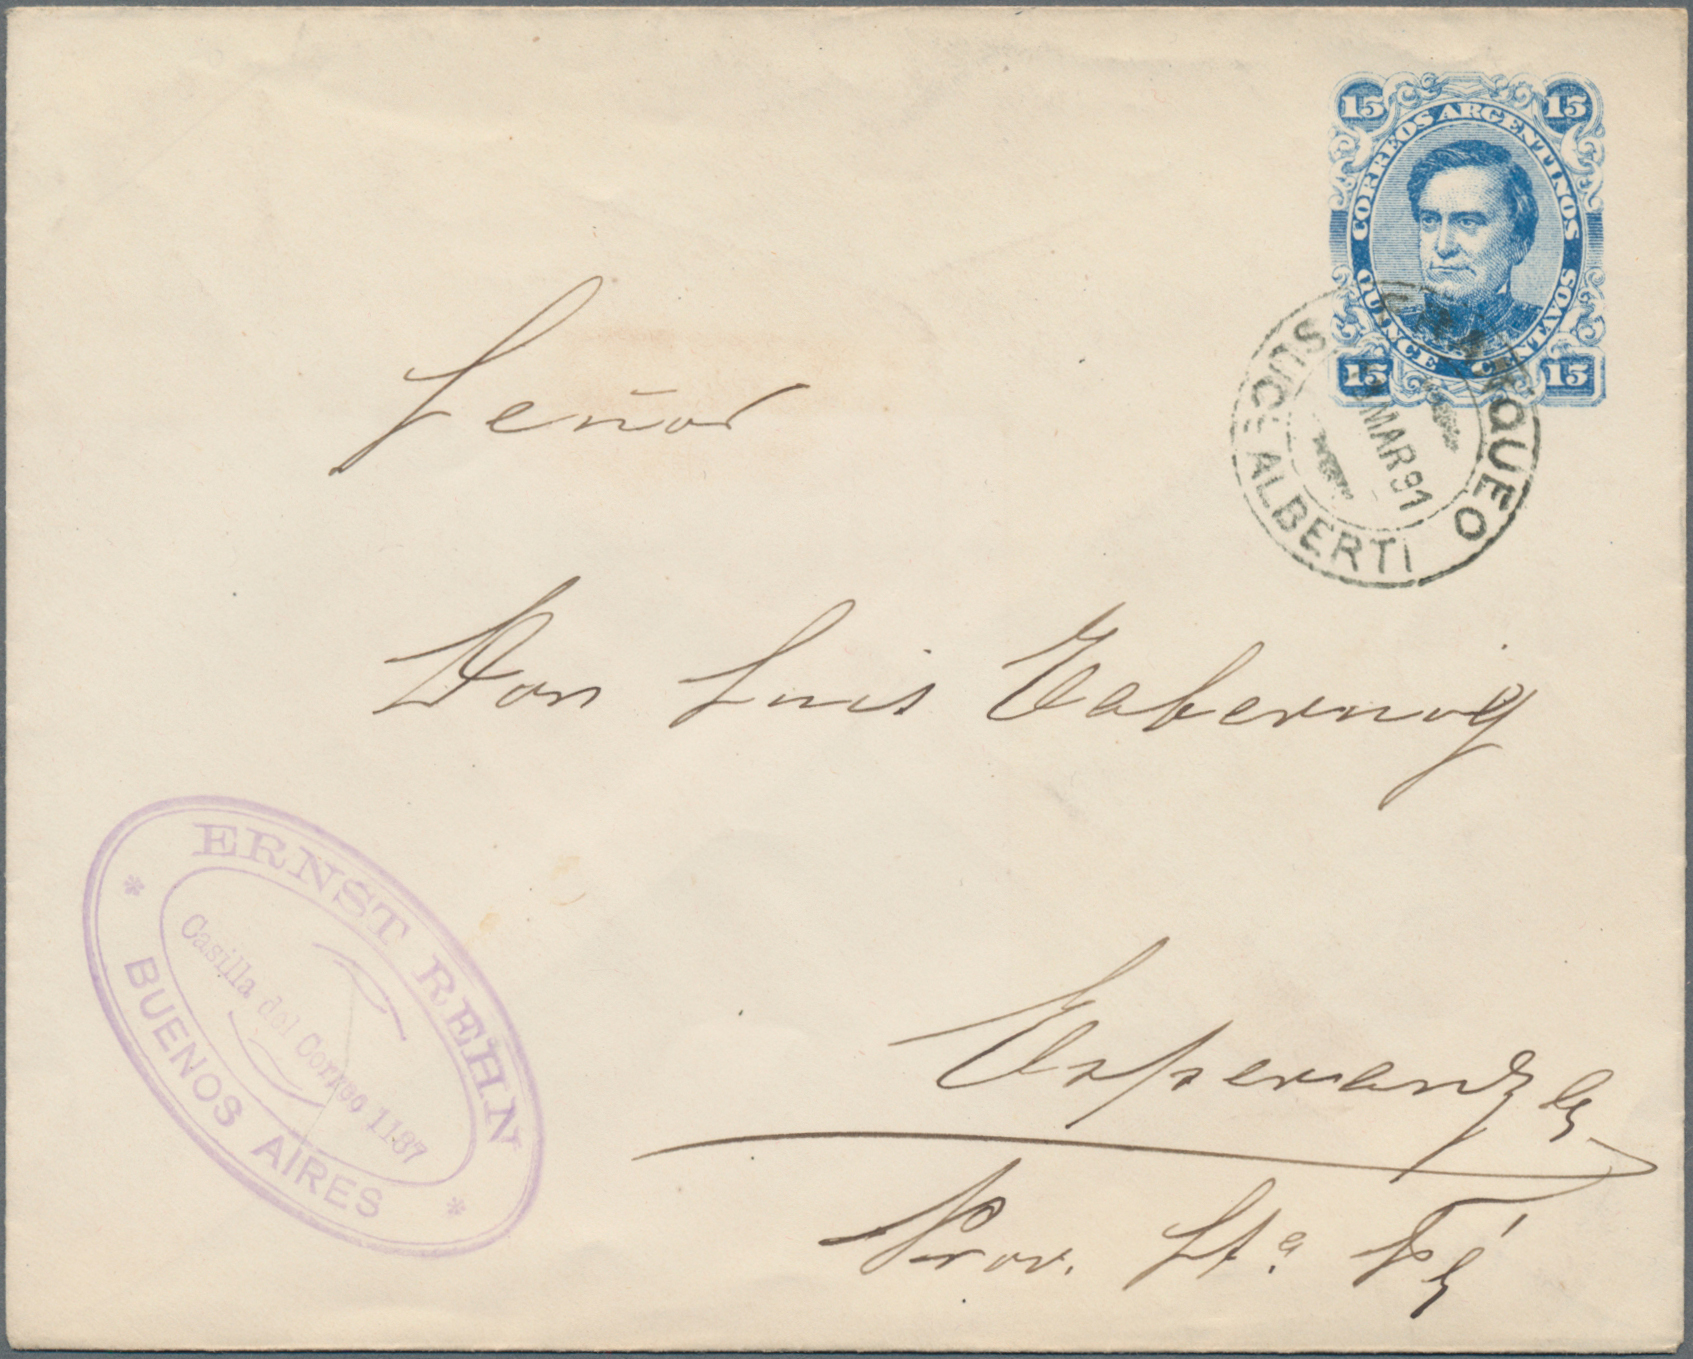 15 15
CORREOS ARGENTINOS
QUINCE CENTAVOS
15 15
SUC. DE ALBERTI
MAR 91
Señor
Don Luis Tabernig
ERNST REHN
Casilla del Correo 1137
BUENOS AIRES
Esperanza
Prov. Sta. Fé